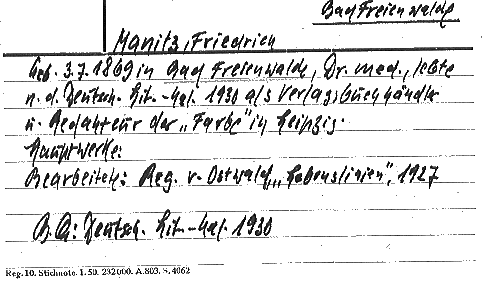 Bad Freienwalde
Manitz, Friedrich
Geb. 3.7.1869 in Bad Freienwalde, Dr. med., lebte
n. d. Deutsch. Lit.-Kal. 1930 als Verlagsbuchhändler
u. Redakteur der „Farbe" in Leipzig.
Hauptwerke:
Bearbeitete: Reg. v. Ostwald „Lebenslinien", 1927
B.Q: Deutsch. Lit.-Kal. 1930
Reg. 10. Stichnote. 1. 50. 232000. A.803. S. 4062